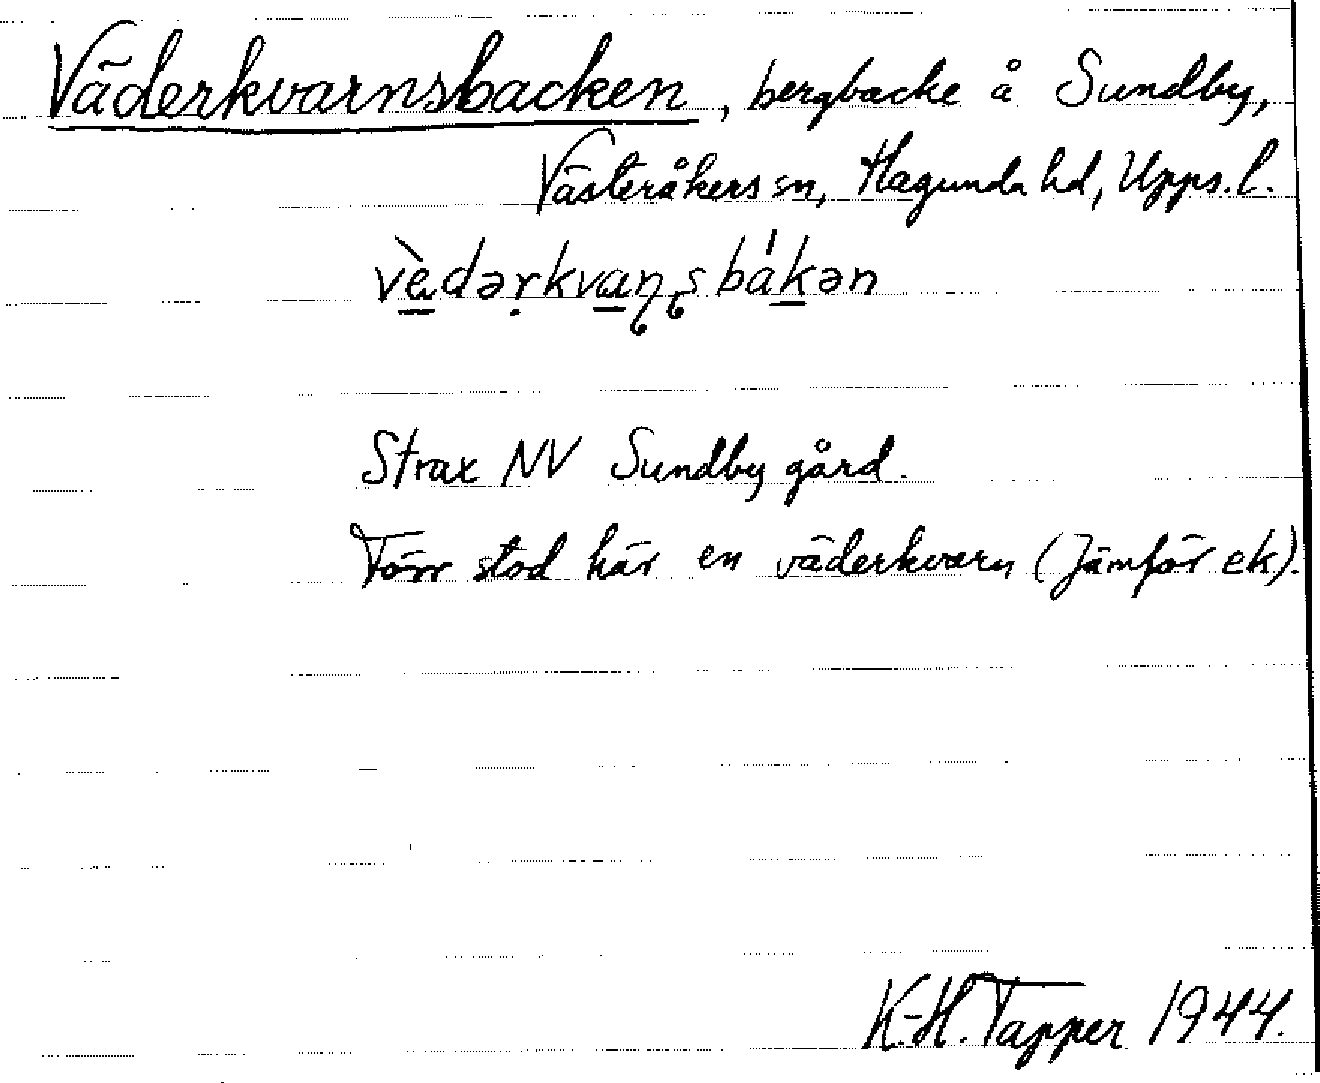 Väderkvarnsbacken, bergbacke å Sundby,
Västeråkers sn, Hagunda hd, Upps. l.
vèdərkvaɳʂbákən
Strax NV Sundby gård.
Förr stod här en väderkvarn (Jämför ek).
K-H. Tapper 1944.